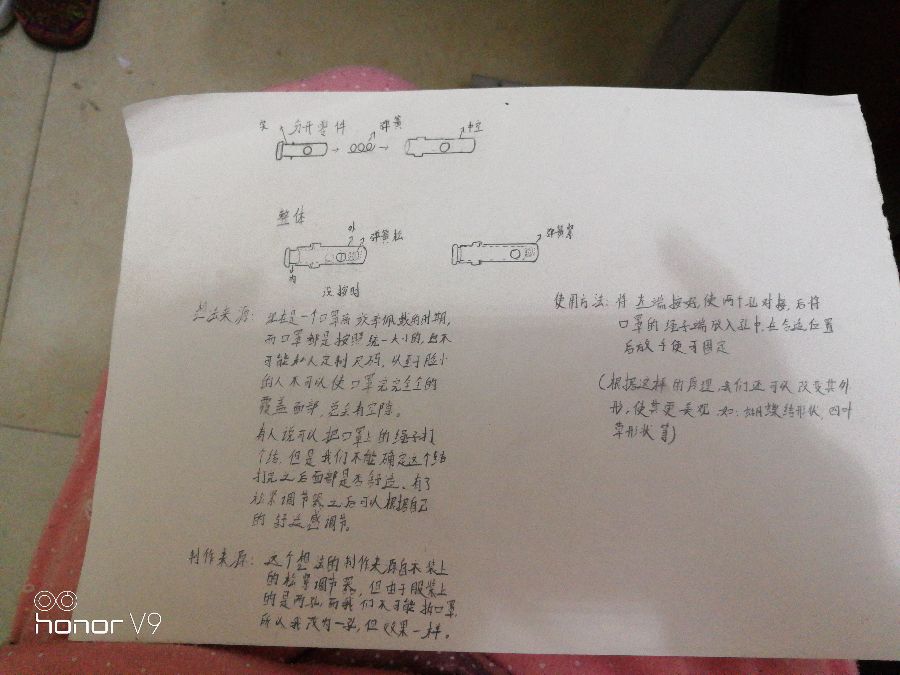 实 分开零件 弹簧 中空
整体
外 弹簧松 弹簧紧
内
没按时
想法来源：现在是一个口罩需要佩戴的时期，
而口罩都是按照统一大小的，且不
可能私人定制尺码，以至于脸小
的人不可以使口罩完完全全的
覆盖面部，总会有空隙。
有人说可以把口罩上的绳子打
个结，但是我们不能确定这个结
打完之后面部是否舒适，有了
这个调节器之后可以根据自己
的舒适感调节。
制作来源：这个想法的制作来源自衣装上
的松紧调节器，但由于服装上
的是两孔，而我们不可能拆口罩，
所以我改为一孔，但效果一样。
使用方法：将左端按好，使两个孔对接，后将
口罩的绳子端放入孔中，在合适位置
后放手使可固定
（根据这样的原理，我们还可以改变其外
形，使其更美观，如：蝴蝶结形状，四叶
草形状等）
honor V9